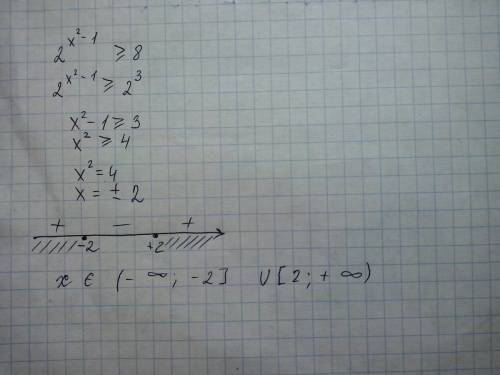 2^{x²-1} ≥ 8
2^{x²-1} ≥ 2³
x²-1 ≥ 3
x² ≥ 4
x² = 4
x = ± 2
+ − +
-2 +2
x ∈ (-∞; -2] ∪ [2; +∞)